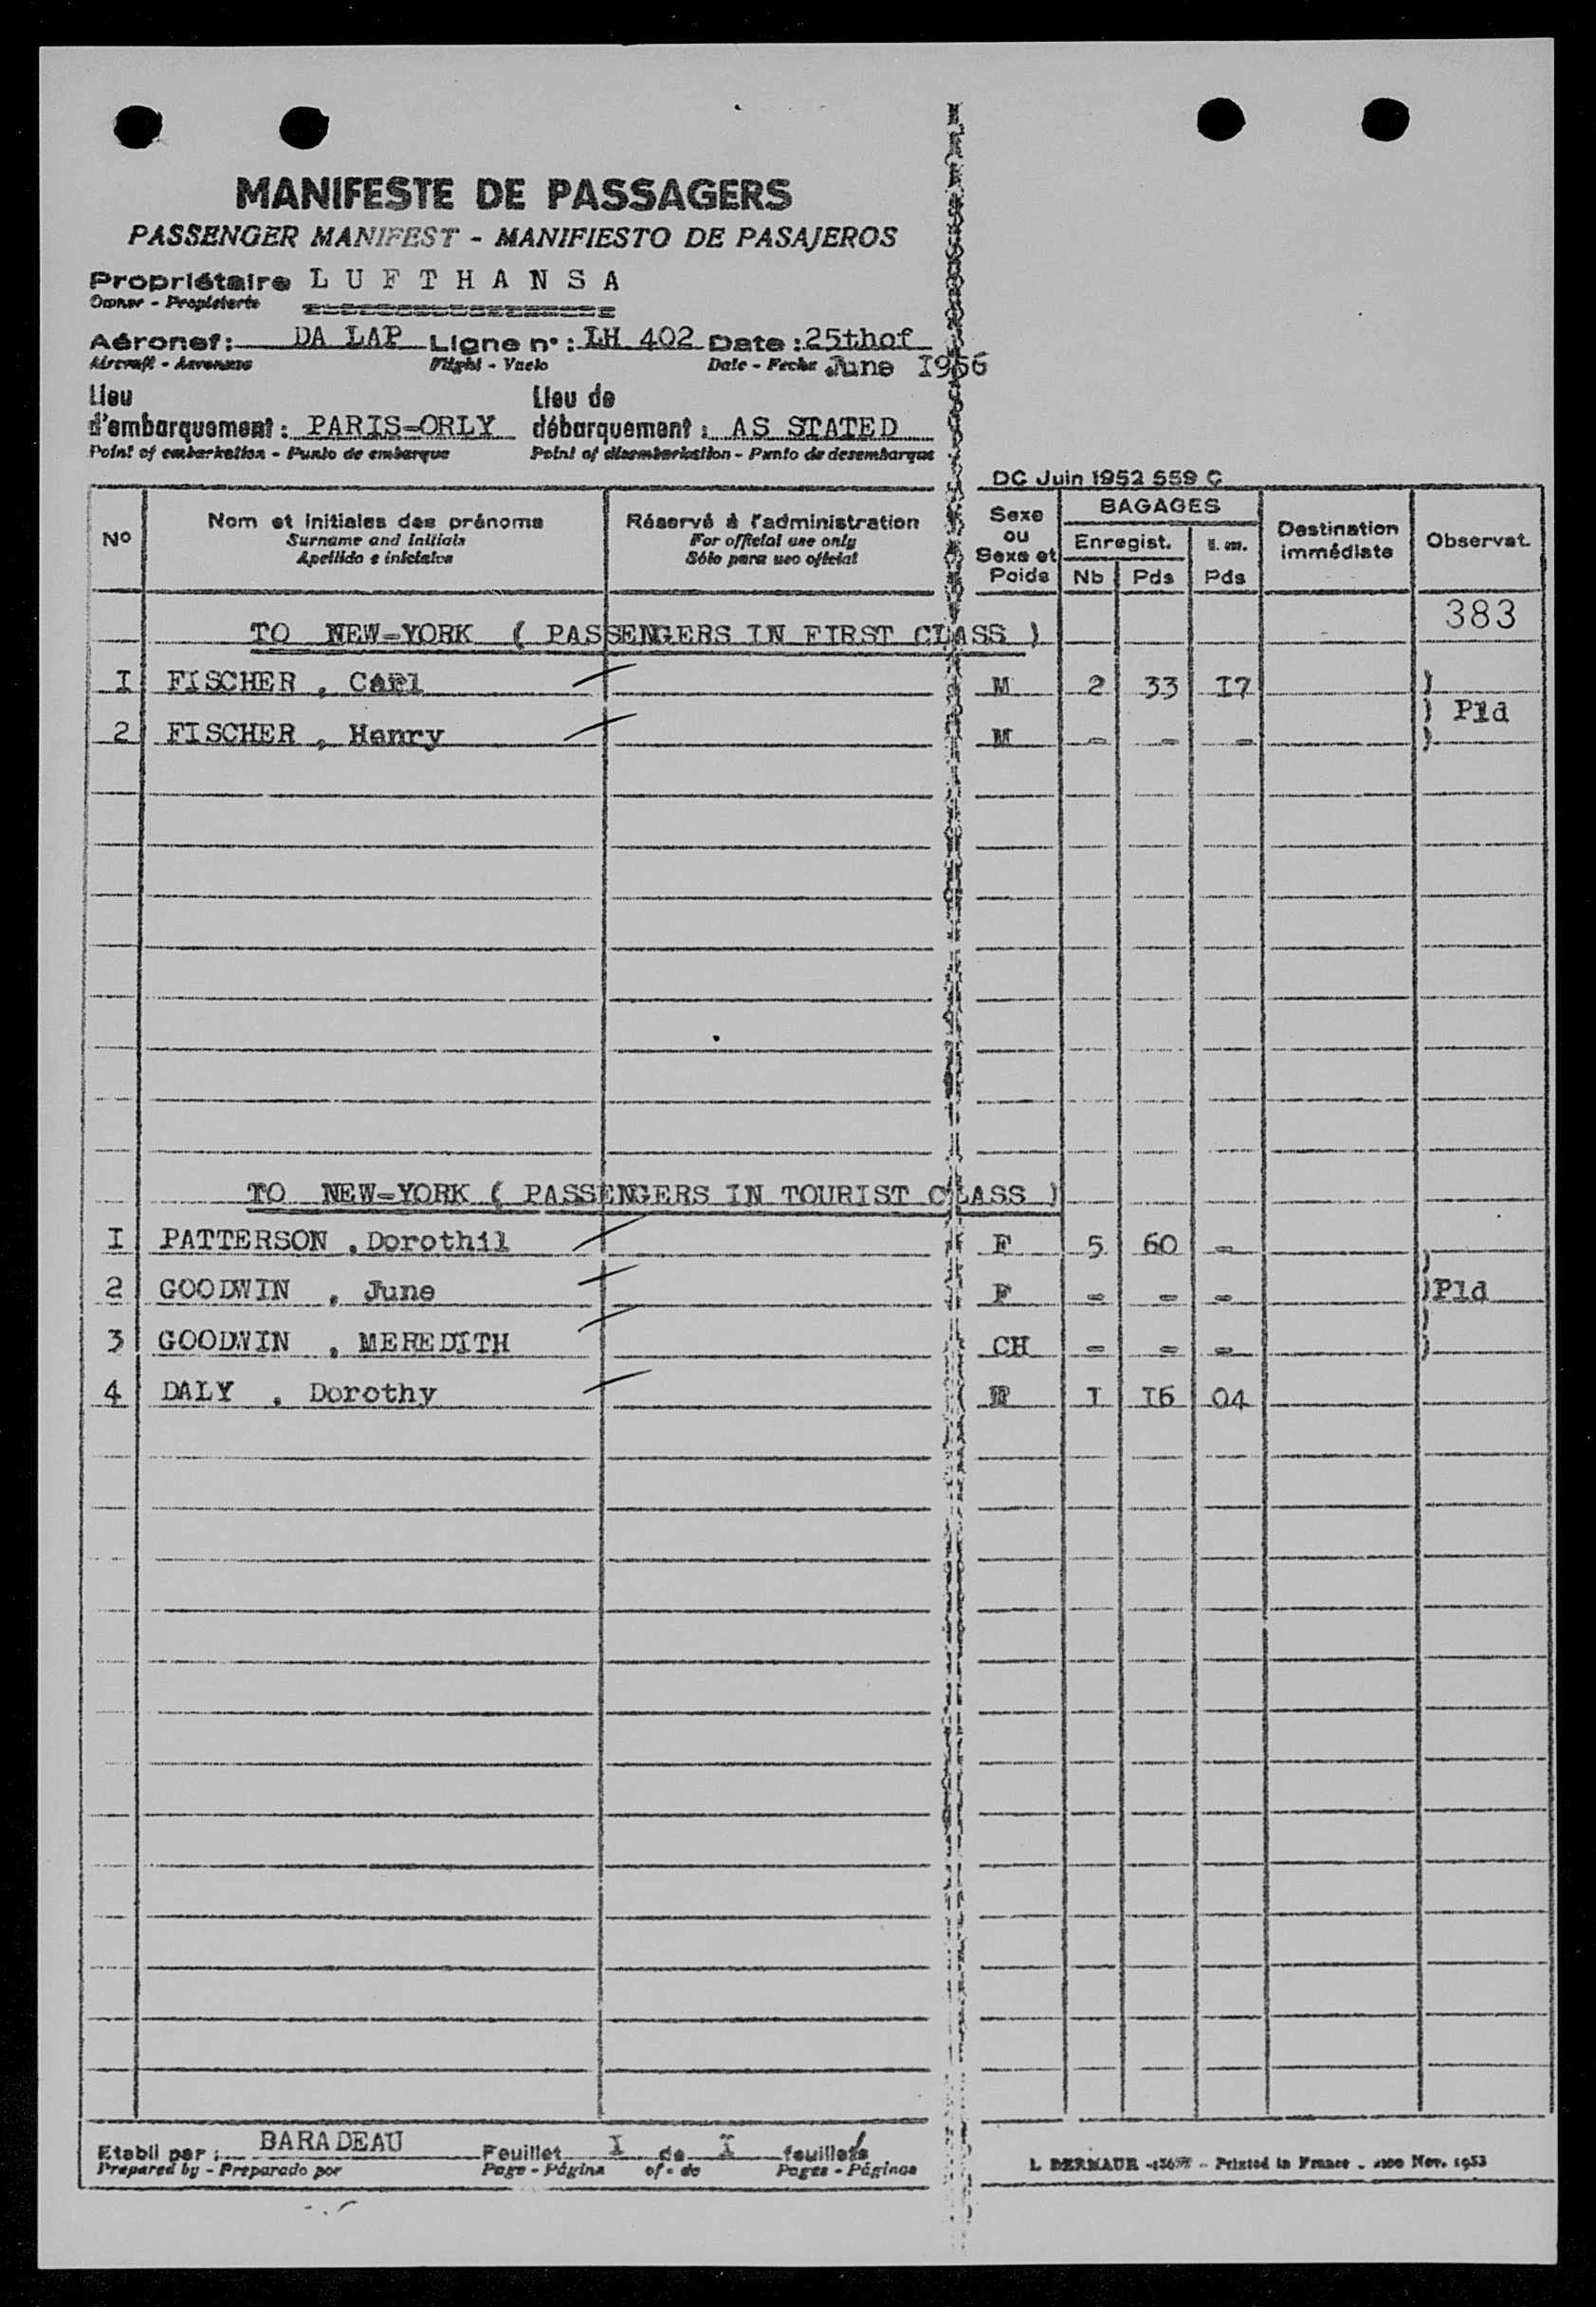 MANIFESTE DE PASSAGERS
PASSENGER MANIFEST - MANIFIESTO DE PASAJEROS
Propriétaire L U F T H A N S A
Owner -
Aéronef: DA LAP Ligne n°: LH 402 Date: 25thof
Aircraft - Flight - Vuelo Date - Fecha June 1956
Lieu Lieu de
d'embarquement: PARIS-ORLY débarquement: AS STATED
Point of embarkation - Punto de embarque Point of disembarkation - Punto de desembarque
DC Juin 1952 559 C
N° Nom et initiales des prénoms Réservé à l'administration Sexe ou Sexe et Poids BAGAGES Destination immédiate Observat.
Surname and initials For official use only Enregist.
Apellido e iniciales Sólo para uso oficial Nb Pds Pds
383
TO NEW-YORK ( PASSENGERS IN FIRST CLASS )
I FISCHER , Carl M 2 33 I7 )
) Pld
2 FISCHER , Henry M - - - )
TO NEW-YORK ( PASSENGERS IN TOURIST CLASS )
I PATTERSON , Dorothil F 5 60 - )
2 GOODWIN , June F - - - )Pld
3 GOODWIN , MEREDITH CH - - - )
4 DALY , Dorothy I I6 04
Etabli par: BARADEAU Feuillet I de I feuillets
Prepared by - Preparado por Page - Página of - de Pages - Páginas
Printed in France - Nov. 1953